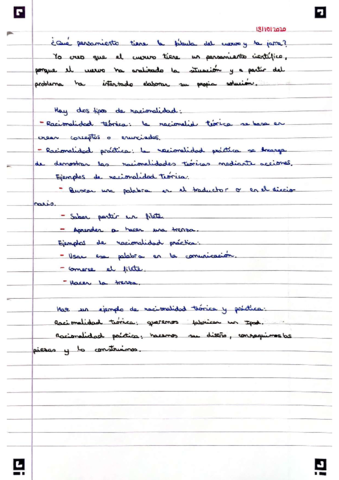 13/10/2020
¿Qué pensamiento tiene la fábula del cuervo y la jarra?
Yo creo que el cuervo tiene un pensamiento científico,
porque el cuervo ha analizado la situación y a partir del
problema ha intentado elaborar su propia solución.
Hay dos tipos de racionalidad:
- Racionalidad teórica: la racionalid teórica se basa en
crear conceptos o enunciados.
- Racionalidad práctica: la racionalidad práctica se encarga
de demostrar las racionalidades teóricas mediante acciones.
Ejemplos de racionalidad teórica:
- Buscar una palabra en el traductor o en el diccio
nario.
- Saber partir un filete.
- Aprender a hacer una trenza.
Ejemplos de racionalidad práctica:
- Usar esa palabra en la comunicación.
- Comerse el filete.
- Hacer la trenza.
Haz un ejemplo de racionalidad teórica y práctica:
Racionalidad teórica: queremos fabricar un Ipod.
Racionalidad práctica: hacemos su diseño, conseguimos las
piezas y lo construimos.